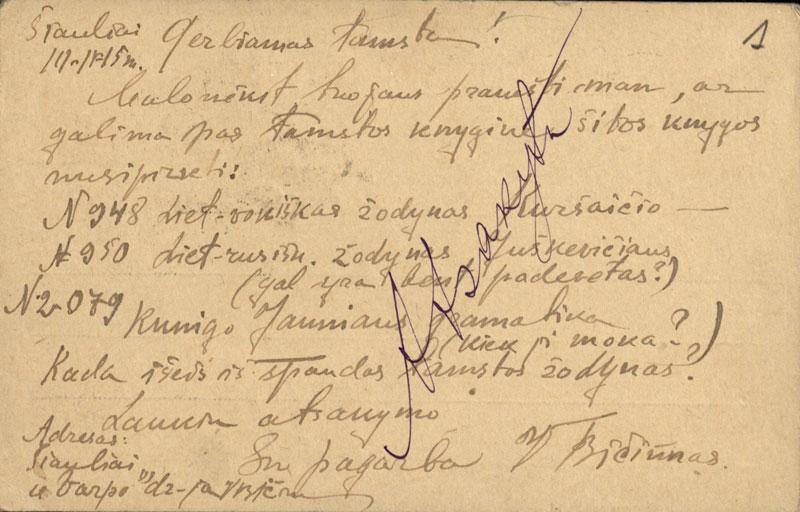 Šiauliai Gerbiamas Tamsta!
1
Malonėkit tuojaus pranešti man, ar
galima pas Tamstos knyginę šitos knygos
nusipirkti:
N 948 Liet-vokiškas žodynas Kuršaičio —
N 950 Liet-rusišk. žodynas Juškevičiaus
(gal yra bent padevėtas?)
N 2079 Kunigo Jauniaus gramatika
(kiek ji moka?)
Kada išeis iš spaudos Tamstos žodynas?
Laukiu atsakymo
Su pagarba V Bičiūnas.
Adresas:
Šiauliai
"Varpo" dr-ja
Atsakyta